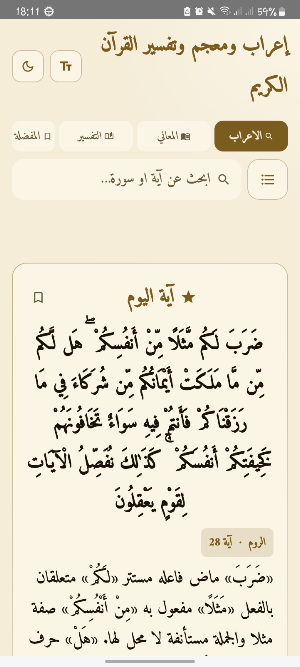 18:11
59%
إعراب ومعجم وتفسير القرآن
الكريم
Tт
الاعراب
المعاني
التفسير
المفضلة
ابحث عن آية او سورة...
آية اليوم
ضَرَبَ لَكُم مَّثَلًا مِّنْ أَنفُسِكُمْ ۖ هَل لَّكُم
مِّن مَّا مَلَكَتْ أَيْمَانُكُم مِّن شُرَكَاءَ فِي مَا
رَزَقْنَاكُمْ فَأَنتُمْ فِيهِ سَوَاءٌ تَخَافُونَهُمْ
كَخِيفَتِكُمْ أَنفُسَكُمْ ۚ كَذَٰلِكَ نُفَصِّلُ الْآيَاتِ
لِقَوْمٍ يَعْقِلُونَ
الروم · آية 28
«ضَرَبَ» ماض فاعله مستتر «لَكُمْ» متعلقان
بالفعل «مَثَلًا» مفعول به «مِنْ أَنْفُسِكُمْ» صفة
مثلا والجملة مستأنفة لا محل لها. «هَلْ» حرف